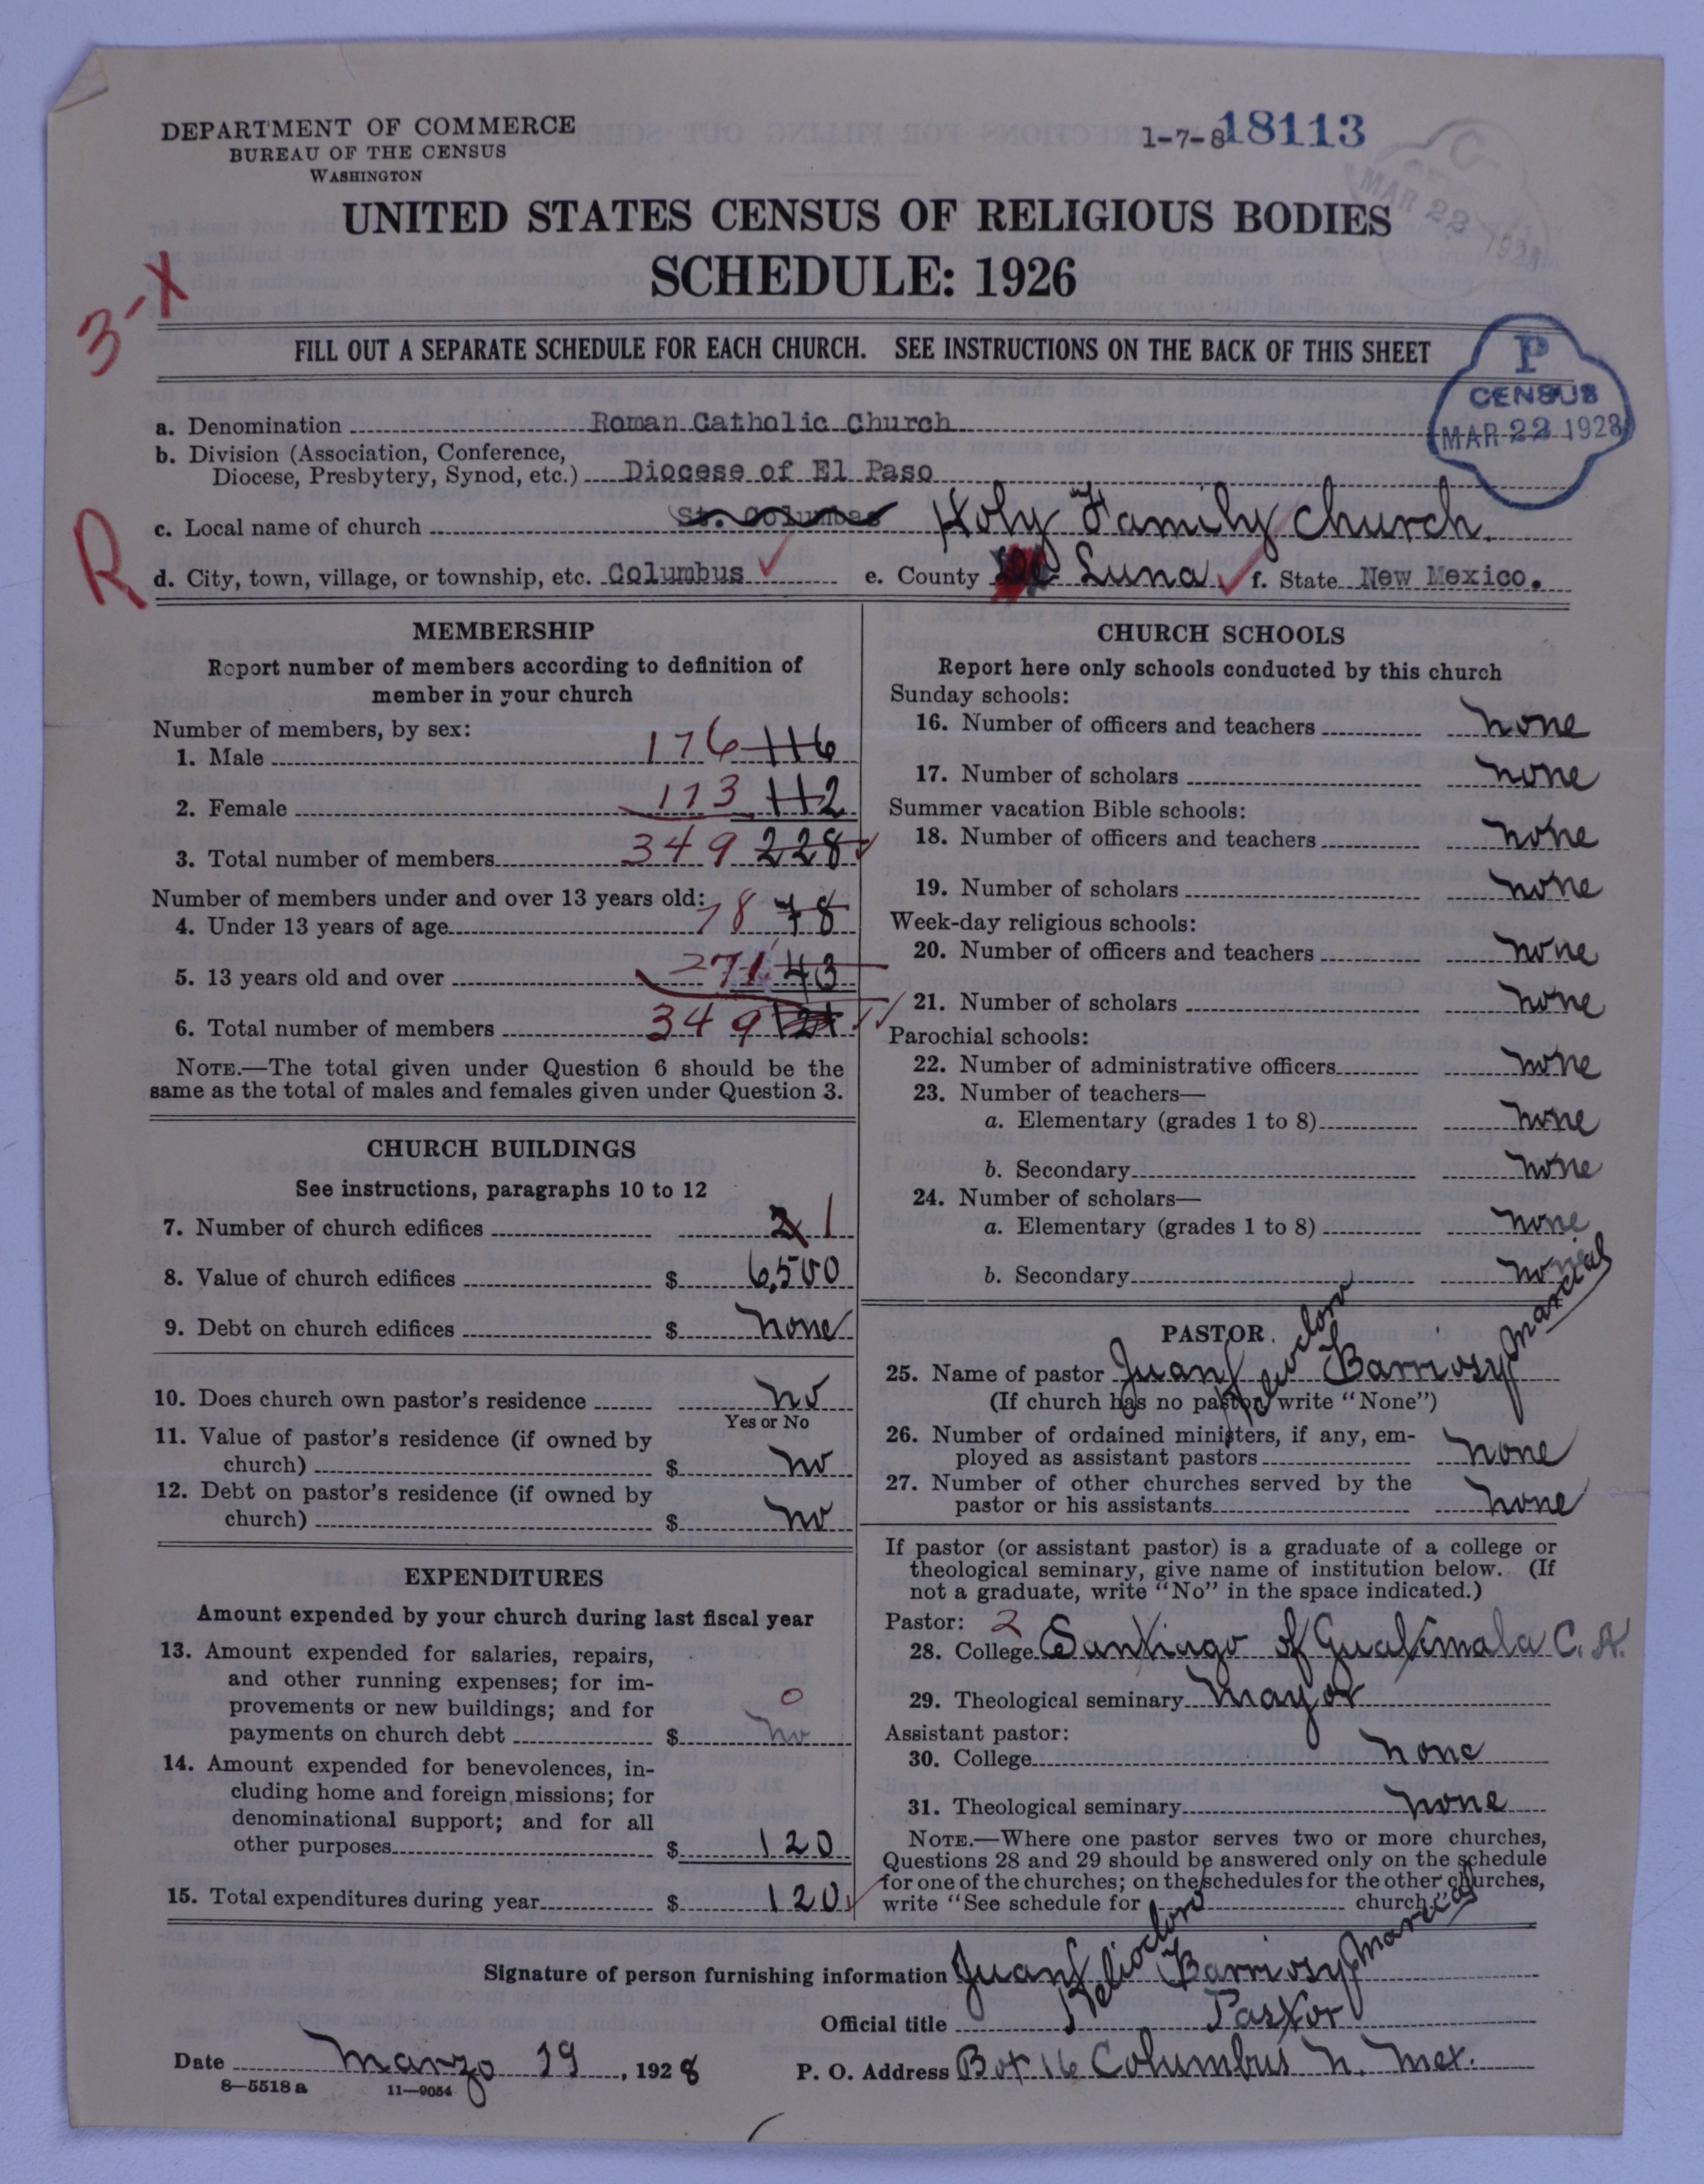 DEPARTMENT OF COMMERCE
BUREAU OF THE CENSUS
WASHINGTON
1-7-8 18113
MAR 22 1928
UNITED STATES CENSUS OF RELIGIOUS BODIES
SCHEDULE: 1926
3-X
FILL OUT A SEPARATE SCHEDULE FOR EACH CHURCH. SEE INSTRUCTIONS ON THE BACK OF THIS SHEET
P
CENSUS
MAR 22 1928
a. Denomination Roman Catholic Church
b. Division (Association, Conference,
Diocese, Presbytery, Synod, etc.) Diocese of El Paso
c. Local name of church St. Columbas Holy Family Church.
R
d. City, town, village, or township, etc. Columbus e. County Luna f. State New Mexico.
MEMBERSHIP
Report number of members according to definition of
member in your church
Number of members, by sex:
1. Male 176 116
2. Female 173 112
3. Total number of members 349 228
Number of members under and over 13 years old:
4. Under 13 years of age 78 78
5. 13 years old and over 271 43
6. Total number of members 349 121
NOTE.—The total given under Question 6 should be the
same as the total of males and females given under Question 3.
CHURCH BUILDINGS
See instructions, paragraphs 10 to 12
7. Number of church edifices 2 1
8. Value of church edifices $ 6,500
9. Debt on church edifices $ none
10. Does church own pastor's residence no
Yes or No
11. Value of pastor's residence (if owned by
church) $ no
12. Debt on pastor's residence (if owned by
church) $ no
EXPENDITURES
Amount expended by your church during last fiscal year
13. Amount expended for salaries, repairs,
and other running expenses; for im-
provements or new buildings; and for
payments on church debt $ no 0
14. Amount expended for benevolences, in-
cluding home and foreign missions; for
denominational support; and for all
other purposes $ 120
15. Total expenditures during year $ 120
CHURCH SCHOOLS
Report here only schools conducted by this church
Sunday schools:
16. Number of officers and teachers none
17. Number of scholars none
Summer vacation Bible schools:
18. Number of officers and teachers none
19. Number of scholars none
Week-day religious schools:
20. Number of officers and teachers none
21. Number of scholars none
Parochial schools:
22. Number of administrative officers none
23. Number of teachers—
a. Elementary (grades 1 to 8) none
b. Secondary none
24. Number of scholars—
a. Elementary (grades 1 to 8) none
b. Secondary none
PASTOR
25. Name of pastor Juan Heliodoro Barrios y Marcial
(If church has no pastor, write "None")
26. Number of ordained ministers, if any, em-
ployed as assistant pastors none
27. Number of other churches served by the
pastor or his assistants none
If pastor (or assistant pastor) is a graduate of a college or
theological seminary, give name of institution below. (If
not a graduate, write "No" in the space indicated.)
Pastor: 2
28. College Santiago of Guatimala C. A.
29. Theological seminary Mayor
Assistant pastor:
30. College none
31. Theological seminary none
NOTE.—Where one pastor serves two or more churches,
Questions 28 and 29 should be answered only on the schedule
for one of the churches; on the schedules for the other churches,
write "See schedule for church."
Signature of person furnishing information Juan Heliodoro Barrios y Marcial
Official title Pastor
Date Marzo 19, 1928 P. O. Address Box 16 Columbus N. Mex.
8—5518a 11—9054